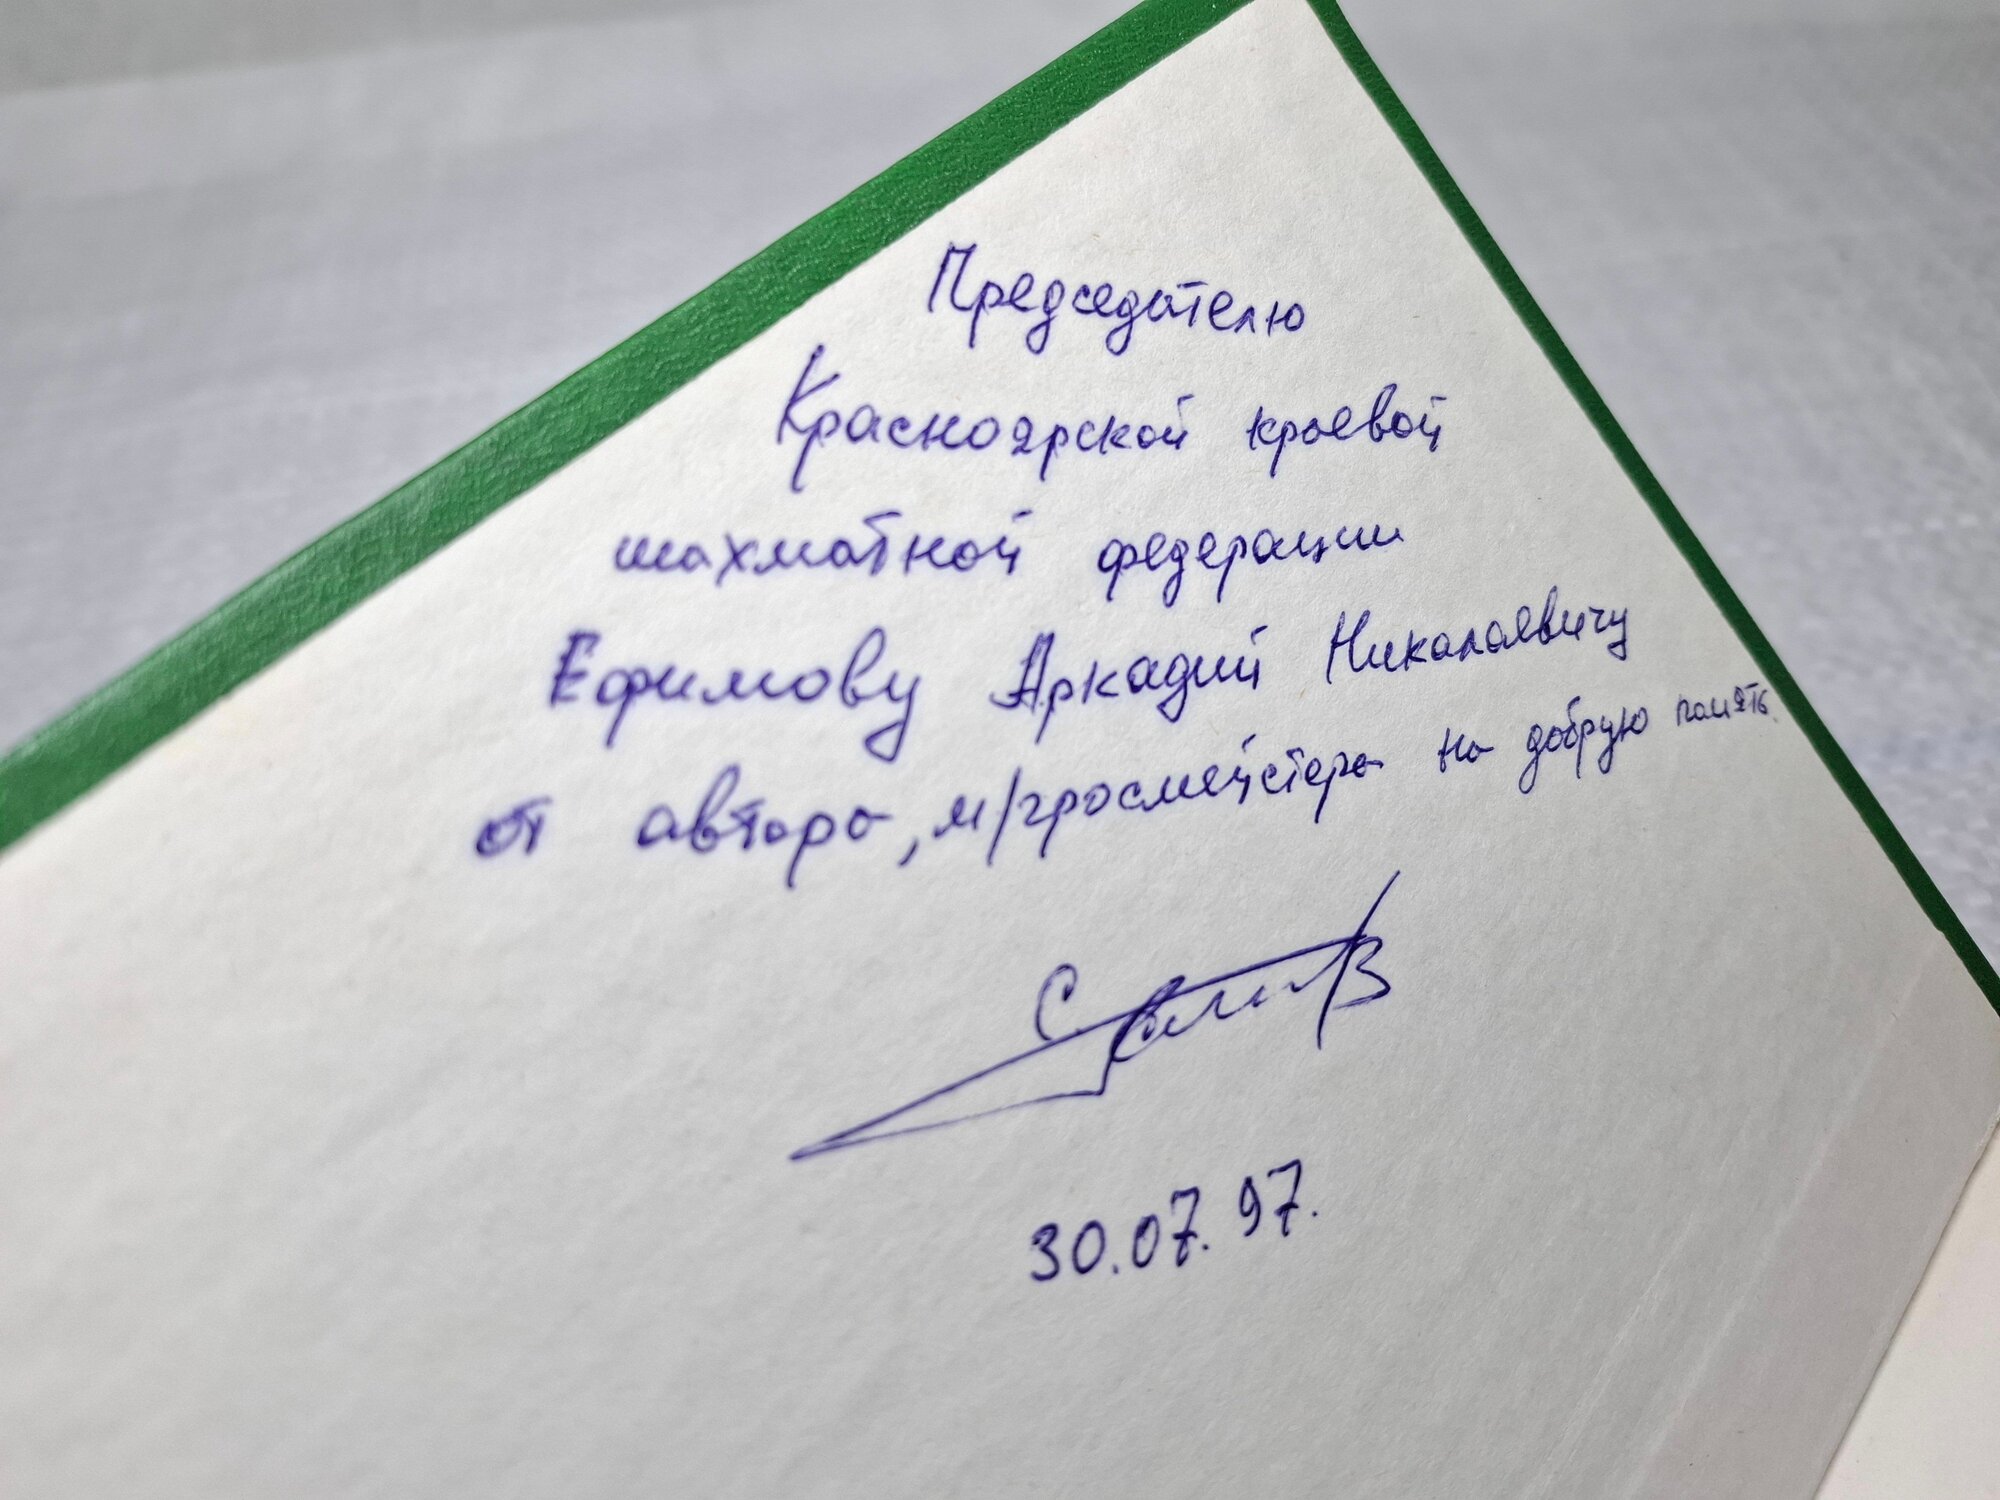 Председателю
Красноярской краевой
шахматной федерации
Ефимову Аркадий Николаевичу
от автора, м/гросмейстера на добрую память.
30.07.97.